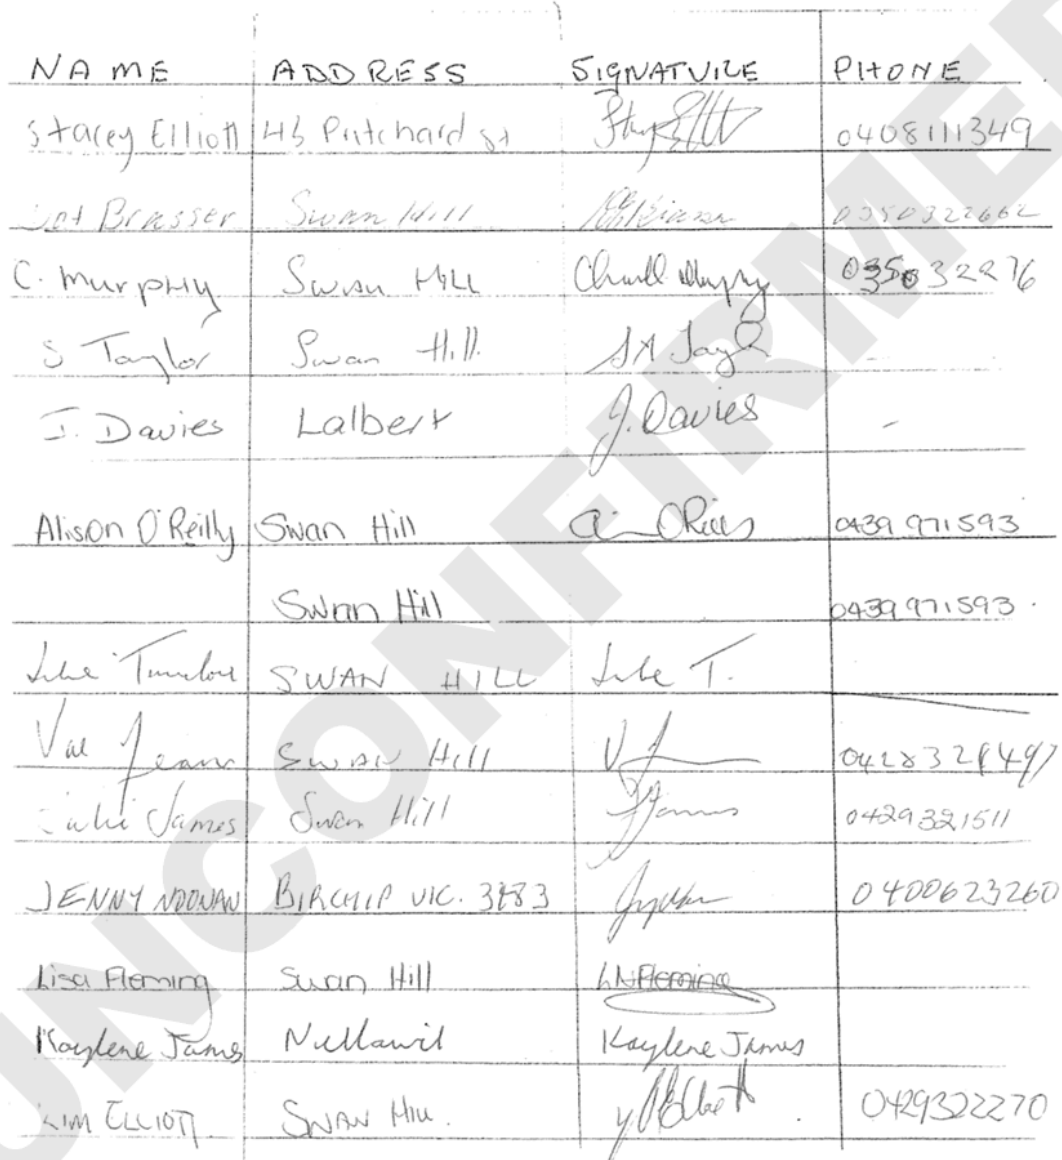 NAME ADDRESS SIGNATURE PHONE
Stacey Elliott 45 Pritchard St 0408111349
Dot Brasser Swan Hill 0350322662
C. Murphy Swan Hill 035032276
S Taylor Swan Hill. S A Taylor
J. Davies Lalbert J. Davies -
Alison O'Reilly Swan Hill 0439 971593
Swan Hill 0439 971593.
SWAN HILL T.
Val Jeans SWAN Hill
Julie James Swan Hill James 0429321511
JENNY NOONAN BIRCHIP VIC. 3483 0400623260
Lisa Fleming Swan Hill LN Fleming
Kaylene James Nullawil Kaylene James
KIM ELLIOTT SWAN HILL. 0429322270
UNCONFIRMED